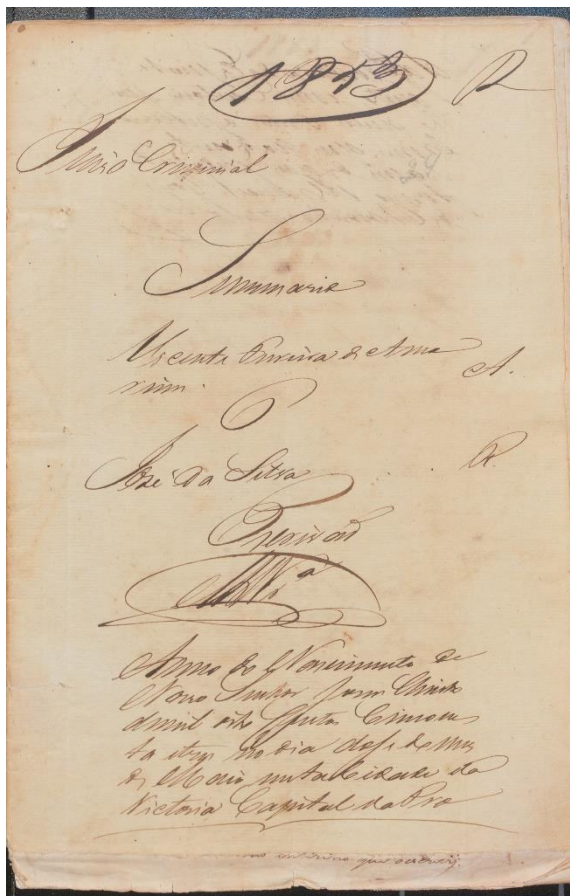 1853 R
Juiso Criminal
Summario
Vicente Pereira de Amo
rim. A.
José da Silva R.
Escrivão
Anno do Nascimento de
Nosso Senhor Jesus Christo
de mil oito centos Cincoen
ta e tres no dia dose do mes
de Maio nesta Cidade da
Victoria Capital da Pro
que escrevy.